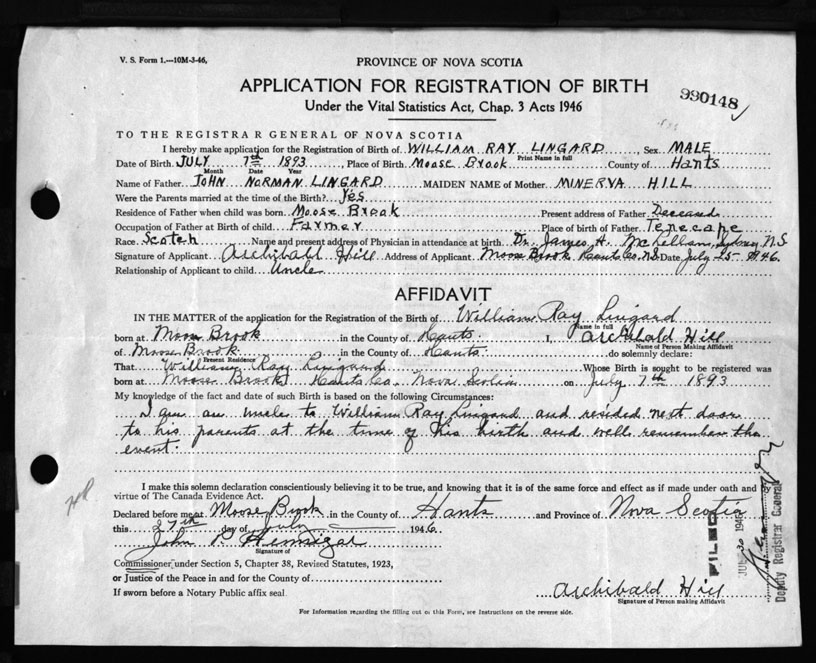 V. S. Form 1.—10M-3-46,
PROVINCE OF NOVA SCOTIA
APPLICATION FOR REGISTRATION OF BIRTH
Under the Vital Statistics Act, Chap. 3 Acts 1946
990148
TO THE REGISTRAR GENERAL OF NOVA SCOTIA
I hereby make application for the Registration of Birth of WILLIAM RAY LINGARD, Sex MALE
Print Name in full
Date of Birth JULY 7th 1893, Place of Birth Moose Brook County of Hants
Month Date Year
Name of Father JOHN NORMAN LINGARD MAIDEN NAME of Mother MINERVA HILL
Were the Parents married at the time of the Birth? Yes
Residence of Father when child was born Moose Brook Present address of Father Deceased
Occupation of Father at Birth of child Farmer Place of birth of Father Tenecape
Race Scotch Name and present address of Physician in attendance at birth Dr. James H. McLellan, Sydney N.S
Signature of Applicant Archibald Hill Address of Applicant Moose Brook Hants Co. N.S. Date July 25- 1946.
Relationship of Applicant to child Uncle
AFFIDAVIT
IN THE MATTER of the application for the Registration of the Birth of William Ray Lingard
Name in full
born at Moose Brook in the County of Hants. I, Archibald Hill
Name of Person Making Affidavit
of Moose Brook in the County of Hants. do solemnly declare:
Present Residence
That William Ray Lingard Whose Birth is sought to be registered was
born at Moose Brook Hants Co. Nova Scotia on July 7th 1893
My knowledge of the fact and date of such Birth is based on the following Circumstances:
I am an uncle to William Ray Lingard and resided next door
to his parents at the time of his birth and well remember the
event.
I make this solemn declaration conscientiously believing it to be true, and knowing that it is of the same force and effect as if made under oath and by
virtue of The Canada Evidence Act.
Declared before me at Moose Brook in the County of Hants and Province of Nova Scotia
this 27th day of July 1946.
John P. Hennigar
Signature of
Commissioner under Section 5, Chapter 38, Revised Statutes, 1923,
or Justice of the Peace in and for the County of
If sworn before a Notary Public affix seal
Archibald Hill
Signature of Person making Affidavit
For Information regarding the filling out of this Form, see Instructions on the reverse side.
FILED
JUL 30 1946
Deputy Registrar General